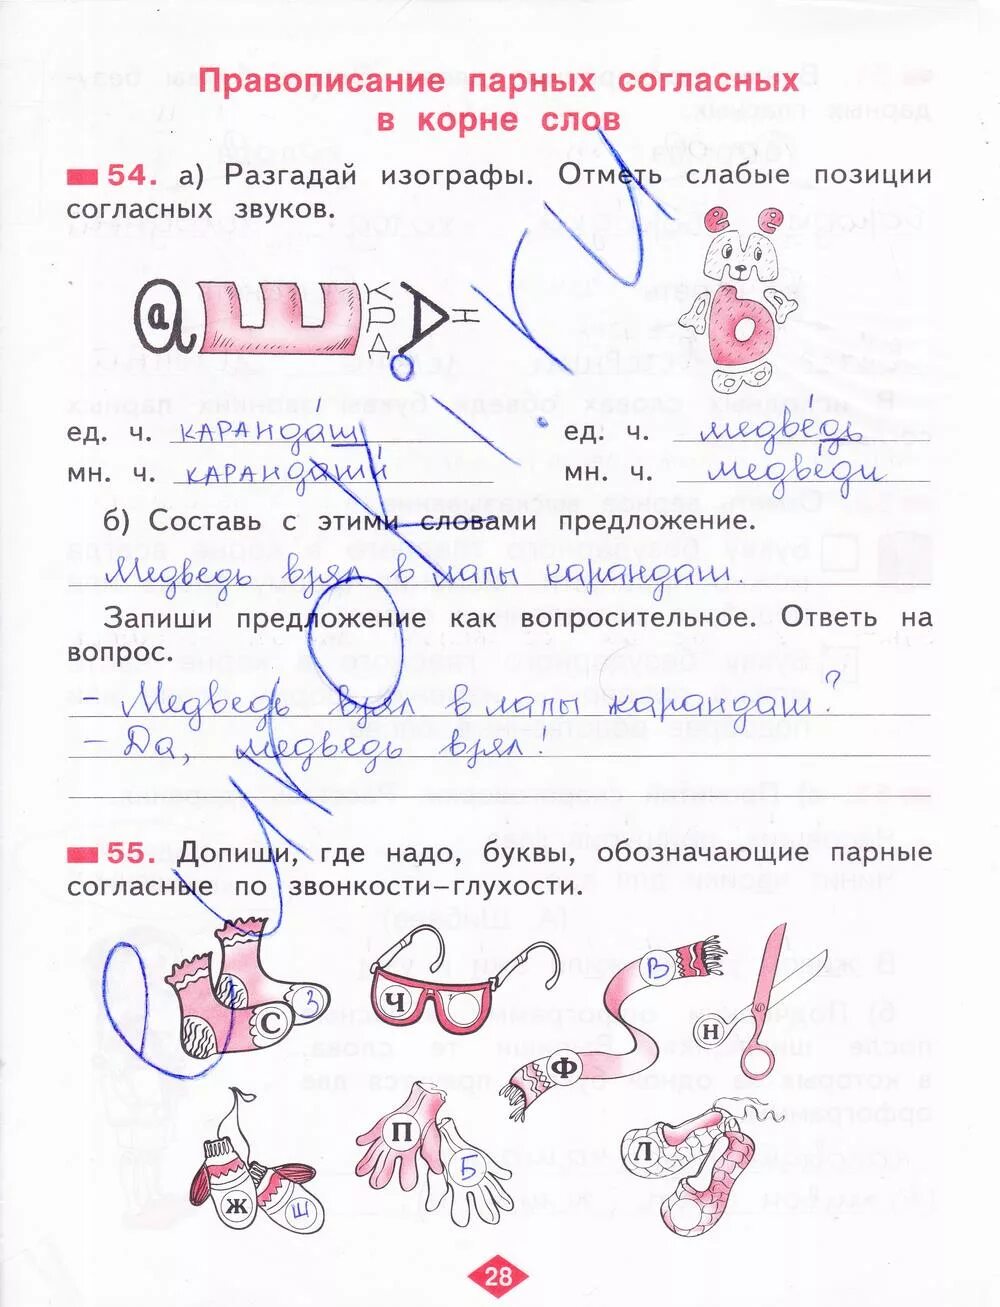 Правописание парных согласных
в корне слов
54. а) Разгадай изографы. Отметь слабые позиции
согласных звуков.
ед. ч. карандаш ед. ч. медведь
мн. ч. карандаши мн. ч. медведи
б) Составь с этими словами предложение.
Медведь взял в лапы карандаш.
Запиши предложение как вопросительное. Ответь на
вопрос.
Медведь взял в лапы карандаш?
– Да, медведь взял.
55. Допиши, где надо, буквы, обозначающие парные
согласные по звонкости–глухости.
С З Ч Ф В Н
Ж Ш П Б Л
28